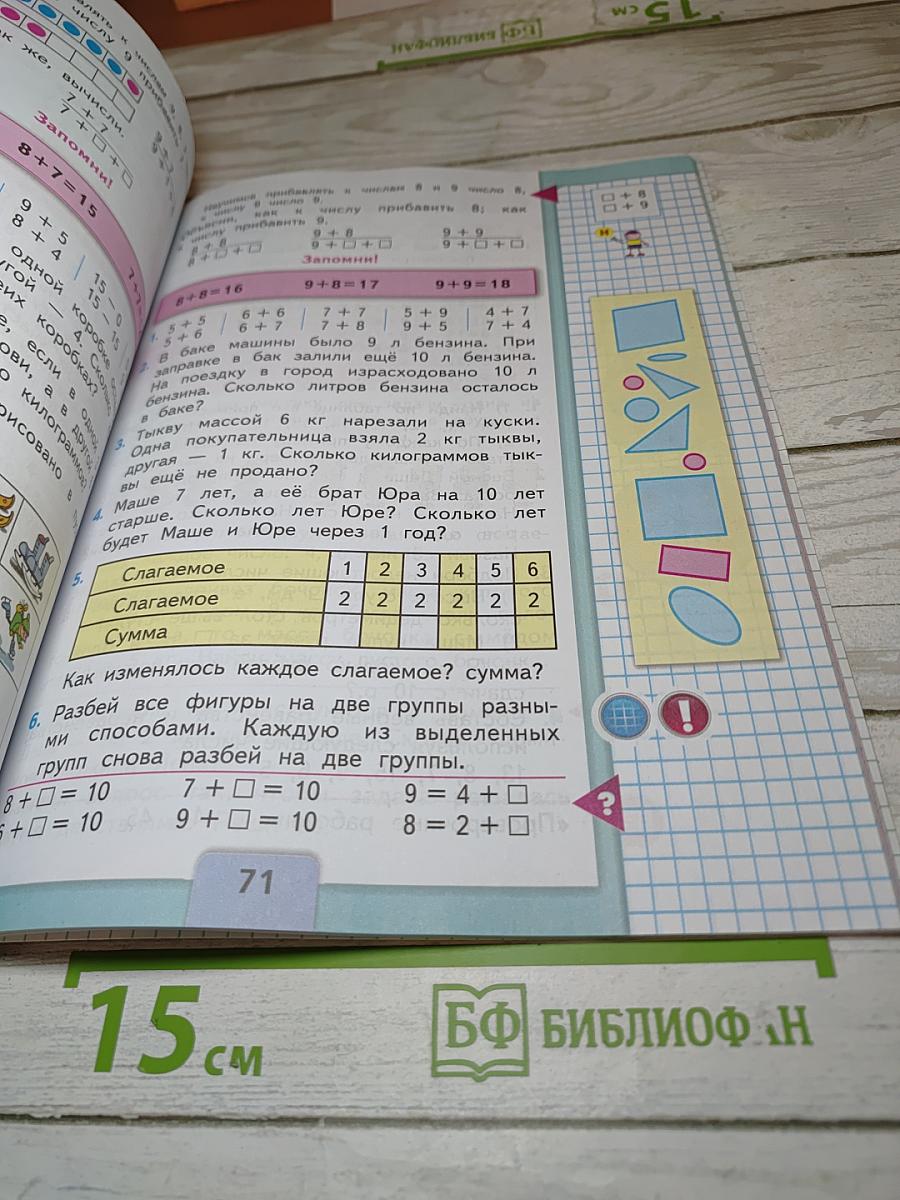 числу 9 приба
ак же, вычисли.
7 + 7
7 + □ + □
Запомни!
8 + 7 = 15
9 + 5
8 + 4
15 –
15 –
одной коробке
угой — 4. Сколько
коробках?
если в одной
а в другой
килограммов
рисовано в
Научимся прибавлять к числам 8 и 9 число 8,
к числу 9 число 9.
как к числу прибавить 8; как
числу прибавить 9.
8 + 8 9 + 8 9 + 9
8 + □ + □ 9 + □ + □ 9 + □ + □
Запомни!
8 + 8 = 16 9 + 8 = 17 9 + 9 = 18
1. 5 + 5 6 + 6 7 + 7 5 + 9 4 + 7
5 + 6 6 + 7 7 + 8 9 + 5 7 + 4
2. В баке машины было 9 л бензина. При
заправке в бак залили ещё 10 л бензина.
На поездку в город израсходовано 10 л
бензина. Сколько литров бензина осталось
в баке?
3. Тыкву массой 6 кг нарезали на куски.
Одна покупательница взяла 2 кг тыквы,
другая — 1 кг. Сколько килограммов тык-
вы ещё не продано?
4. Маше 7 лет, а её брат Юра на 10 лет
старше. Сколько лет Юре? Сколько лет
будет Маше и Юре через 1 год?
5. Слагаемое 1 2 3 4 5 6
Слагаемое 2 2 2 2 2 2
Сумма
Как изменялось каждое слагаемое? сумма?
6. Разбей все фигуры на две группы разны-
ми способами. Каждую из выделенных
групп снова разбей на две группы.
8 + □ = 10 7 + □ = 10 9 = 4 + □
6 + □ = 10 9 + □ = 10 8 = 2 + □
?
71
□ + 8
□ + 9
!
15 см
БФ БИБЛИОФАН
15 см
БФ БИБЛИОФАН